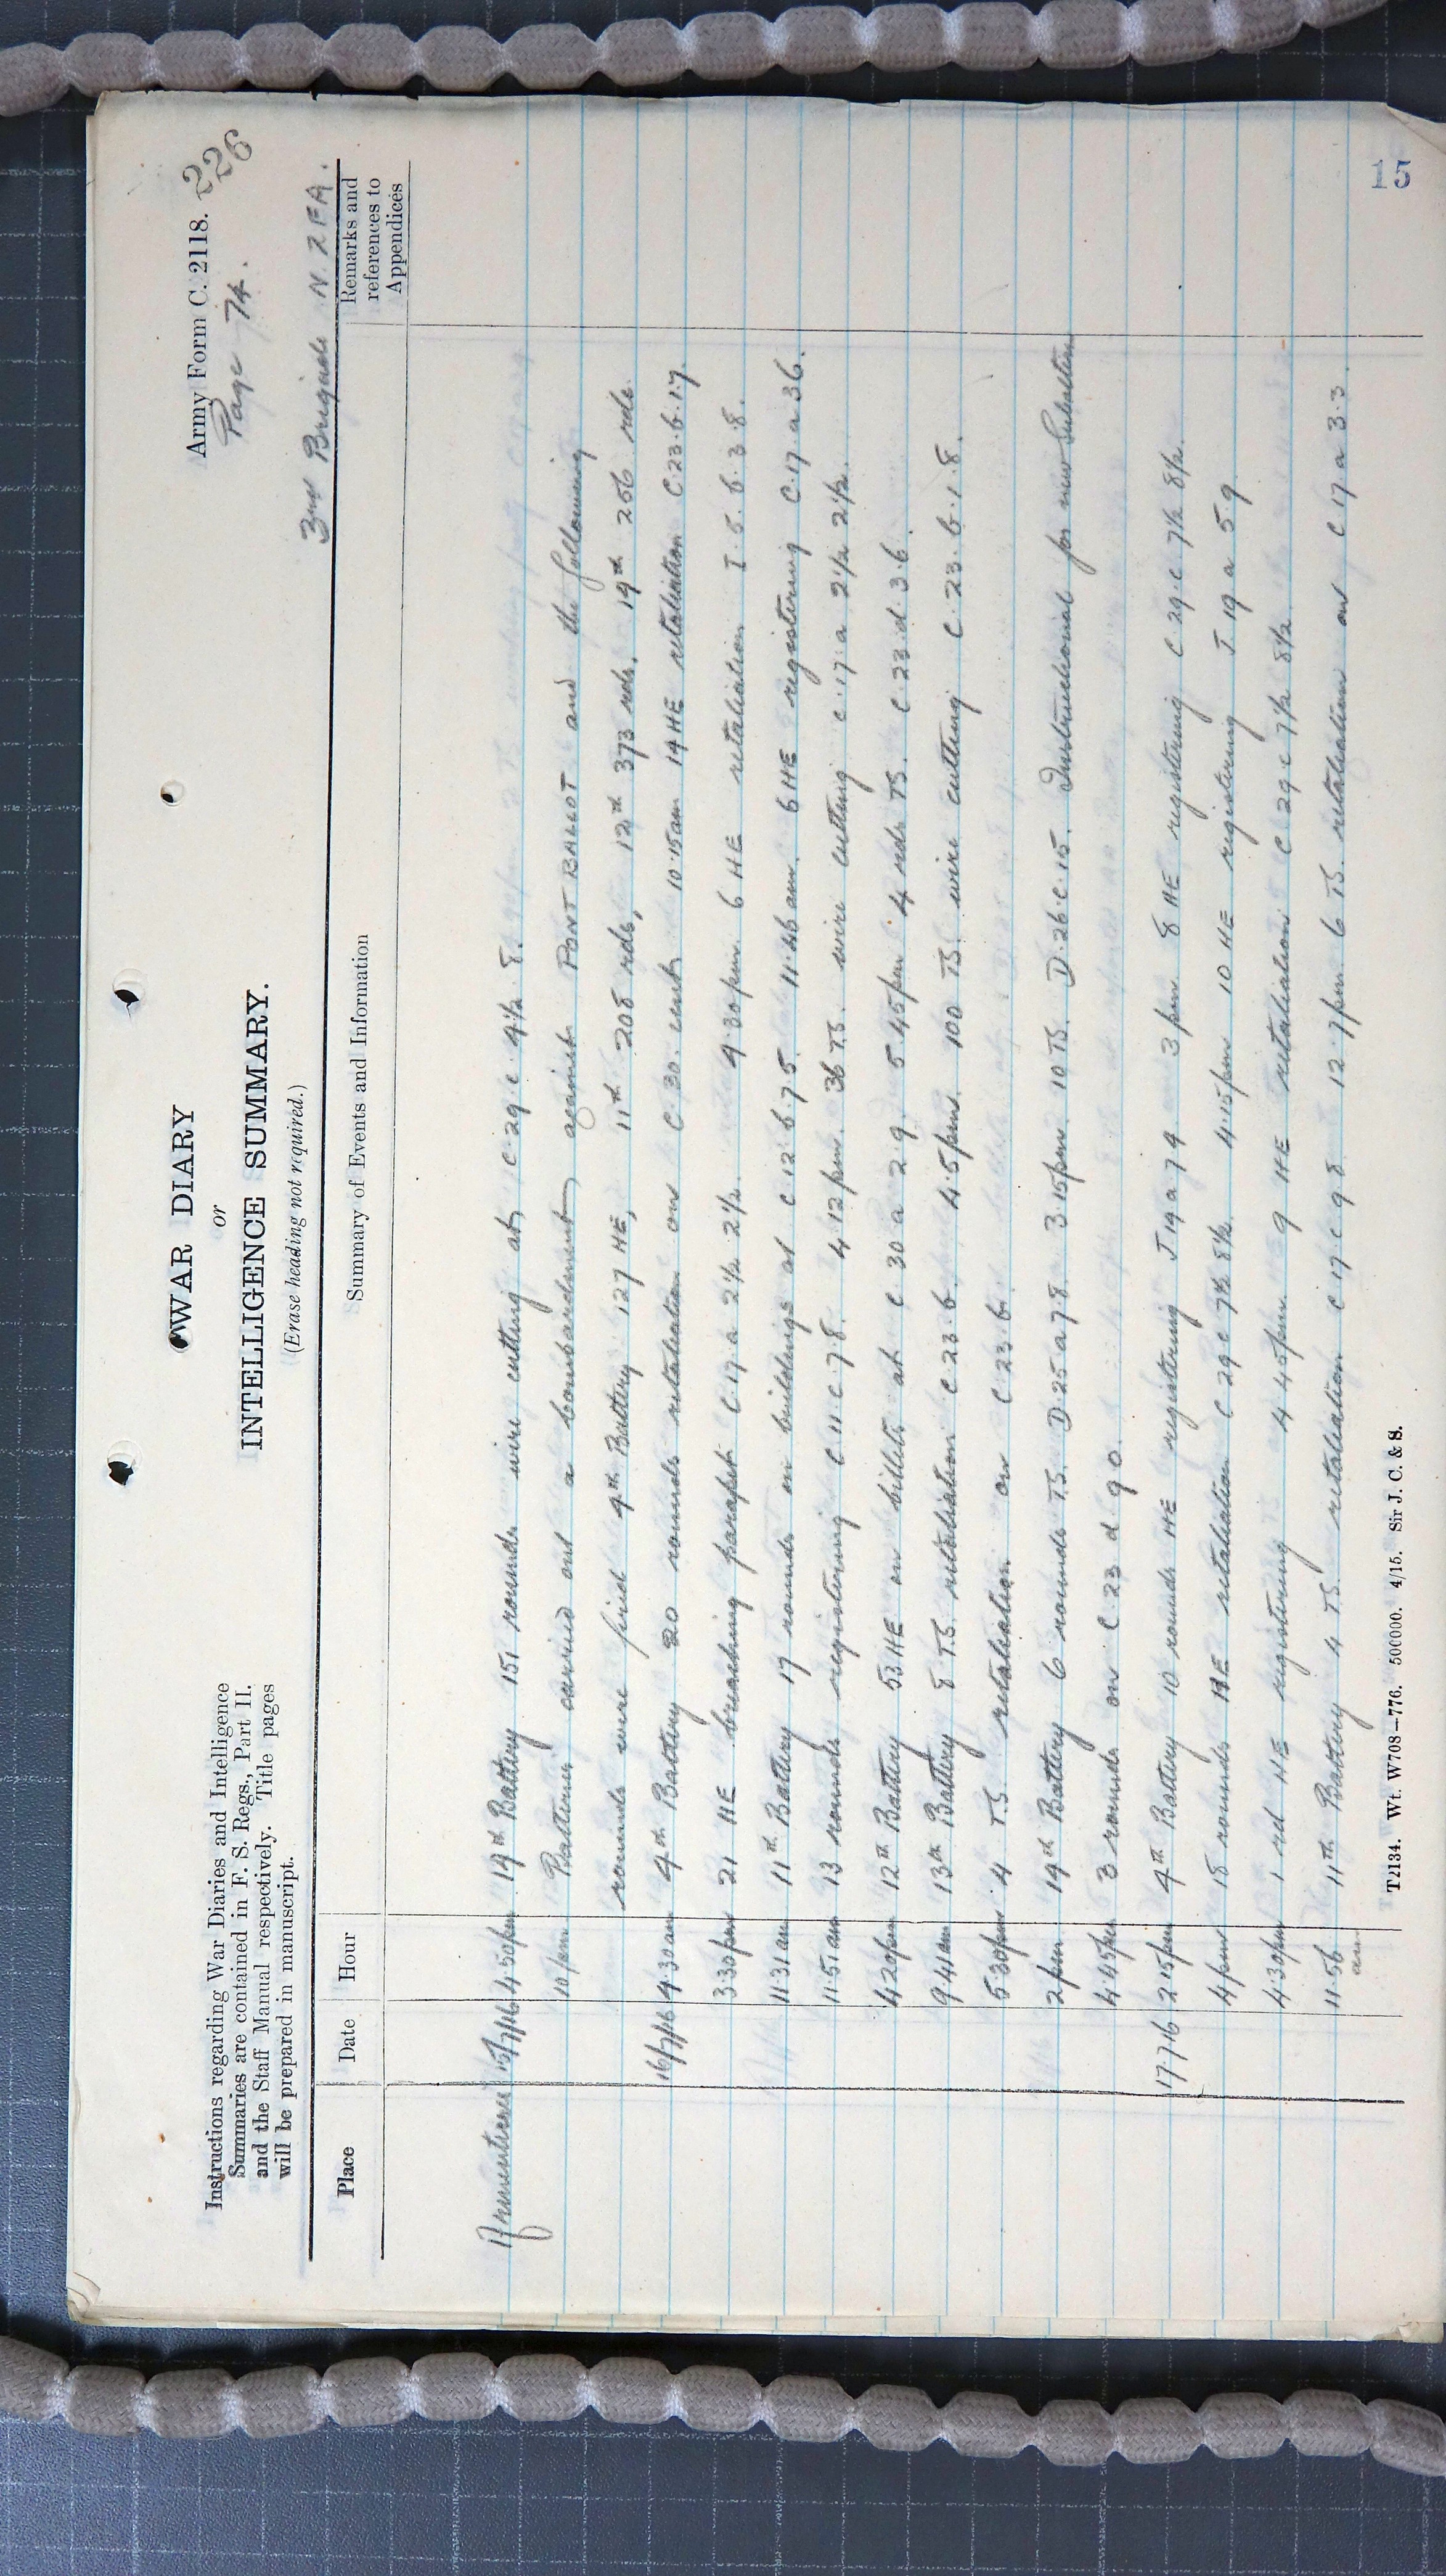 Army Form C. 2118.
226
Page 74.
WAR DIARY
or
INTELLIGENCE SUMMARY.
(Erase heading not required.)
3rd Brigade N.Z.F.A.
Instructions regarding War Diaries and Intelligence
Summaries are contained in F. S. Regs., Part II.
and the Staff Manual respectively. Title pages
will be prepared in manuscript.
Place Date Hour Summary of Events and Information Remarks and references to Appendices
Armentieres 15/7/16 4.50pm 19th Battery 151 rounds wire cutting at C.29.c.9½.8.
10 pm Batteries carried out a bombardment against PONT BALLOT and the following
rounds were fired 4th Battery 127 HE, 11th 208 rds, 12th 373 rds, 19th 256 rds.
16/7/16 9.30am 4th Battery 20 rounds retaliation on C.30. cent. 10.15am 14 HE retaliation C.23.b.1.7
3.30pm 21 HE breaching parapet C.17 a 2½ 2½. 9.30pm 6 HE retaliation I.5.b.3.8.
11.31am 11th Battery 17 rounds on buildings at C.12 b.7.5. 11.46am 6 HE registering C.17.a 36.
11.51am 13 rounds registering C.11.C.7.8. 4.12pm. 36 T.S. wire cutting C.17.a 2½ 2½.
4.20pm 12th Battery 53 HE on billets at C 30 a 2.9. 5.45pm 4 rds TS. C.23.d.3.6.
9.41am 13th Battery 8 T.S. retaliation C.23.b. 4.5pm. 100 TS. wire cutting C.23.b.1.8.
5.30pm 4 T.S retaliation on C.23.b.
2pm 19th Battery 6 rounds T.S. D.25 a 7.8. 3.15pm. 10 TS. D.26.c.15. Instructional for new Subaltern
4.45pm 3 rounds on C.23 d 9 0.
17.7.16 2.15pm 4th Battery 10 rounds HE registering J 19 a 7 4 3 pm. 8 HE registering C 29.c 7½ 8½.
4 pm 18 rounds HE retaliation C 29 c 7½ 8½. 4.15pm 10 HE registering J 19 a 5.9
4.30pm 1 rd HE registering 4.45pm. 9 HE retaliation C 29 c 7½ 8½.
11.56 am 11th Battery 4 T.S. retaliation C 17 c 9 8 12.7pm. 6 TS. retaliation on C 17 a 3.3.
T2134. Wt. W708—776. 500000. 4/15. Sir J. C. & S.
15